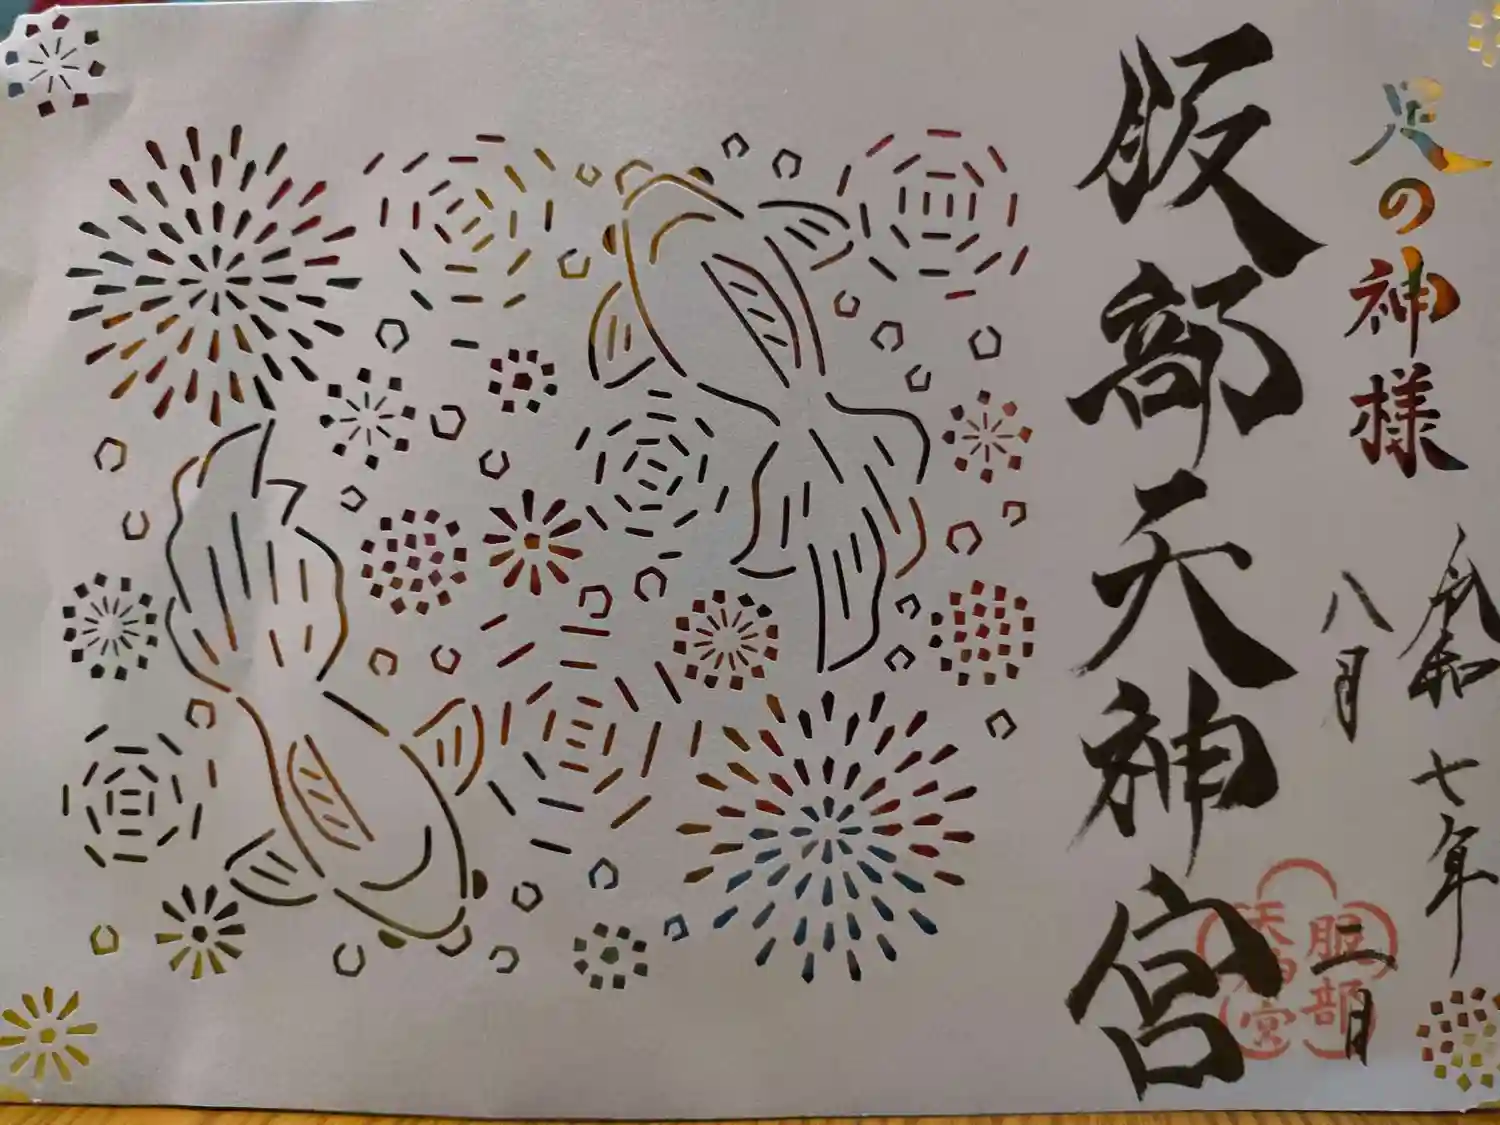 足の神様
令和七年
八月二日
服部天神宮
服部
天神宮